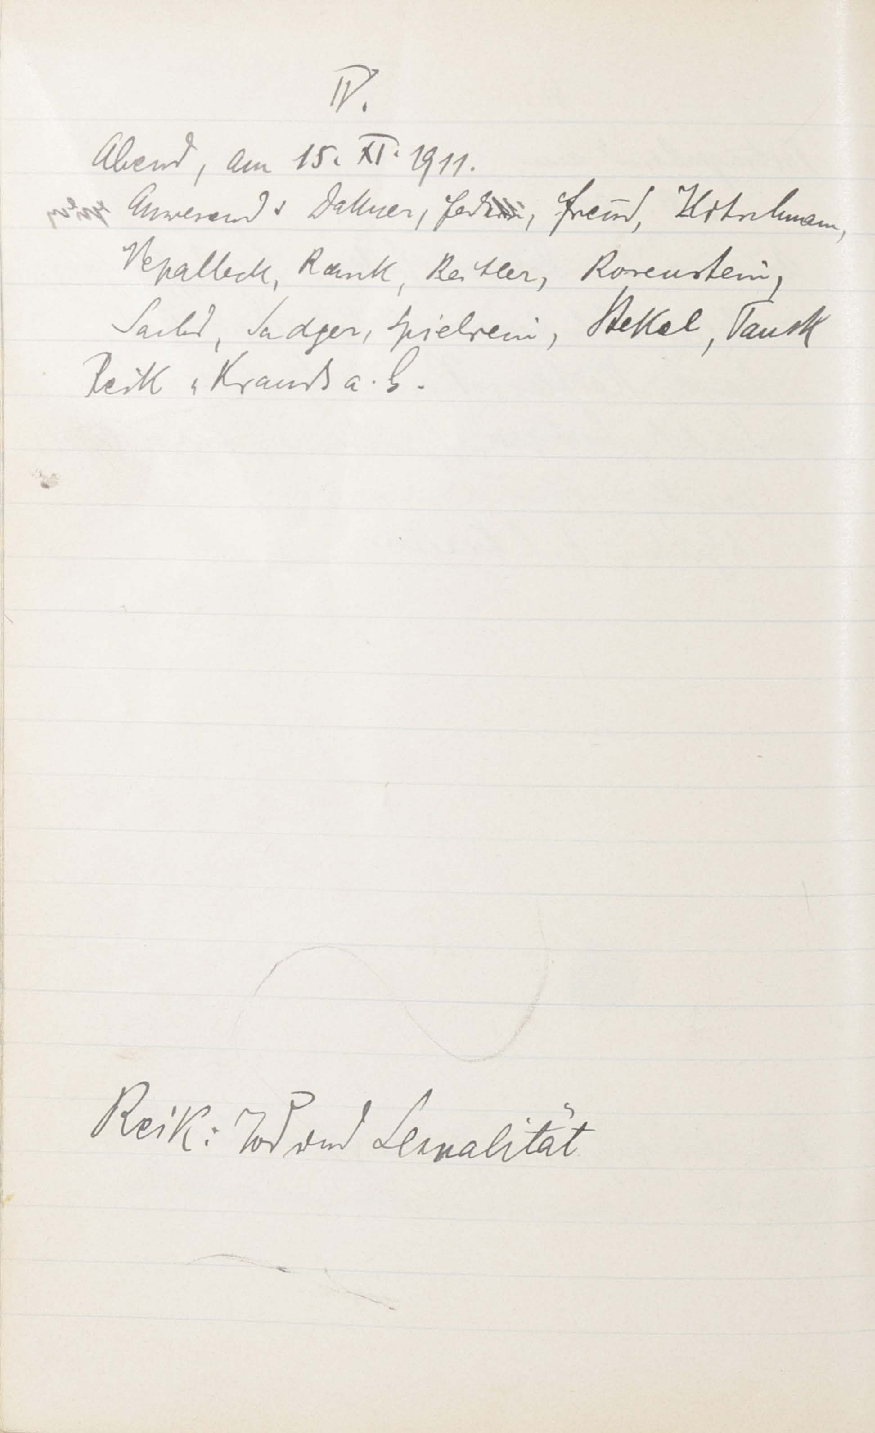 IV.
Abend, am 15. XI. 1911.
Anwesend: Dattner, Federn, Freud, Hitschmann,
Nepalleck, Rank, Reitler, Rosenstein,
Sachs, Sadger, Spielrein, Stekel, Tausk
Reik u Krauss a. G.
Reik: Tod und Sexualität